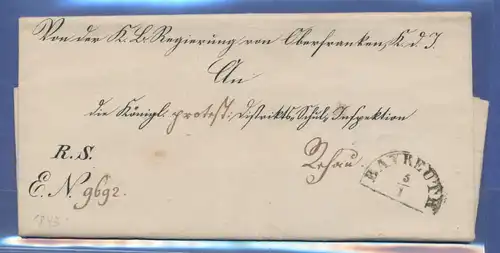 Von der K. B. Regierung von Oberfranken, K. d. I.
An
die Königl. protest. Distrikts-Schul-Inspektion
R. S.
Rehau.
BAYREUTH
5
1
E. N. 9692
1843